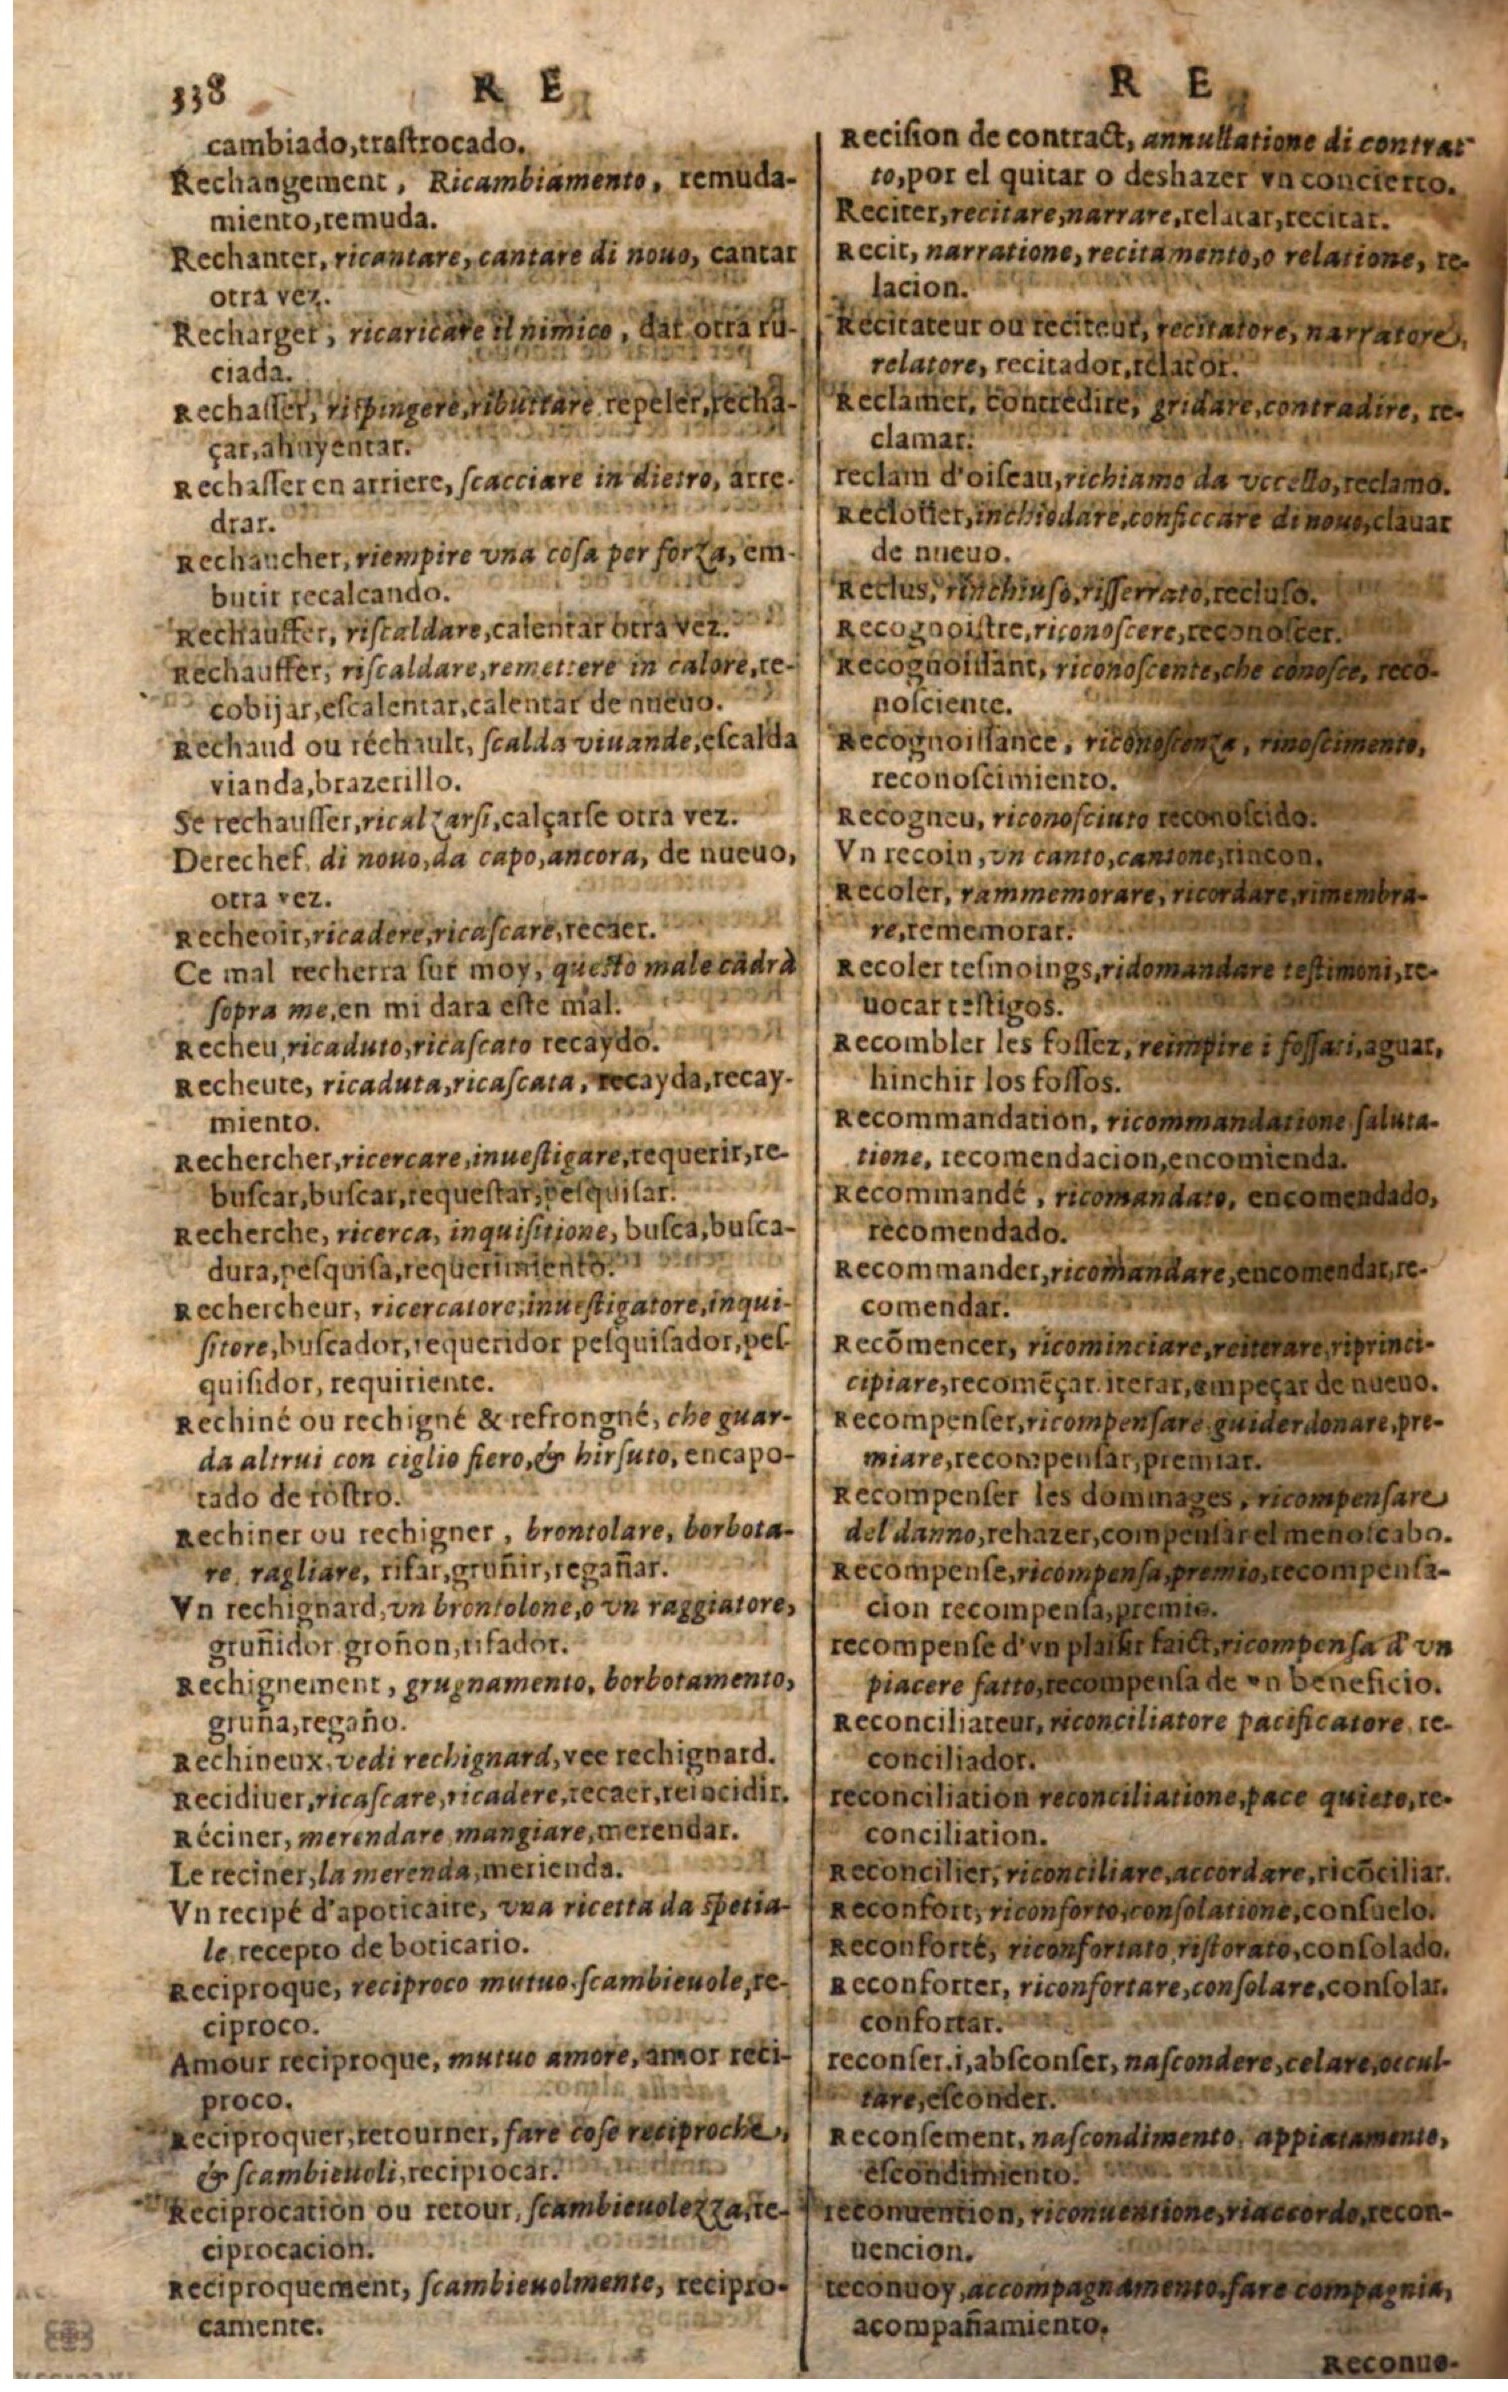 338 R E
cambiado,traſtrocado.
Rechangement, Ricambiamento, remuda-
miento,remuda.
Rechanter, ricantare, cantare di nouo, cantar
otra vez.
Recharger, ricaricare il nimico, dar otra ru-
ciada.
Rechaſſer, riſpingere,ributtare repeler,recha-
çar,ahuyentar.
Rechaſſer en arriere, ſcacciare in dietro, arre-
drar.
Rechaucher, riempire vna coſa per forza, em-
butir recalcando.
Rechauffer, riſcaldare,calentar otra vez.
Rechauffer, riſcaldare,remettere in calore,re-
cobijar,eſcalentar,calentar de nueuo.
Rechaud ou réchault, ſcalda viuande,eſcalda
vianda,brazerillo.
Se rechauſſer,ricalzarſi,calçarſe otra vez.
Derechef, di nouo,da capo,ancora, de nueuo,
otra vez.
Recheoir,ricadere,ricaſcare,recaer.
Ce mal recherra ſur moy, queſto male cadrà
ſopra me,en mi dara eſte mal.
Recheu,ricaduto,ricaſcato recaydo.
Recheute, ricaduta,ricaſcata, recayda,recay-
miento.
Rechercher,ricercare,inueſtigare,requerir,re-
buſcar,buſcar,requeſtar,peſquiſar.
Recherche, ricerca, inquiſitione, buſca,buſca-
dura,peſquiſa,requerimiento.
Rechercheur, ricercatore,inueſtigatore,inqui-
ſitore,buſcador,requeridor peſquiſador,peſ-
quiſidor, requiriente.
Rechiné ou rechigné & refrongné, che guar-
da altrui con ciglio fiero,& hirſuto, encapo-
tado de roſtro.
Rechiner ou rechigner, brontolare, borbota-
re, ragliare, rifar,gruñir,regañar.
Vn rechignard,vn brontolone,o vn raggiatore,
gruñidor groñon,rifador.
Rechignement, grugnamento, borbotamento,
gruña,regaño.
Rechineux,vedi rechignard,vee rechignard.
Recidiuer,ricaſcare,ricadere,recaer,reincidir.
Réciner, merendare mangiare,merendar.
Le reciner,la merenda,merienda.
Vn recipé d'apoticaire, vna ricetta da ſpetia-
le,recepto de boticario.
Reciproque, reciproco mutuo.ſcambieuole,re-
ciproco.
Amour reciproque, mutuo amore, amor reci-
proco.
Reciproquer,retourner, fare coſe reciproche,
& ſcambieuoli,reciprocar.
Reciprocation ou retour, ſcambieuolezza,re-
ciprocacion.
Reciproquement, ſcambieuolmente, recipro-
camente.
R E
Reciſion de contract, annullatione di contrat-
to,por el quitar o deshazer vn concierto.
Reciter,recitare,narrare,relatar,recitar.
Recit, narratione,recitamento,o relatione, re-
lacion.
Recitateur ou reciteur, recitatore, narratore,
relatore, recitador,relator.
Reclamer, contredire, gridare,contradire, re-
clamar.
reclam d'oiſeau,richiamo da vccello,reclamo.
Reclouer,inchiodare,conficcare di nouo,clauar
de nueuo.
Reclus, rinchiuſo,riſſerrato,recluſo.
Recognoiſtre,riconoſcere,reconoſcer.
Recognoiſſant, riconoſcente,che conoſce, reco-
noſciente.
Recognoiſſance, riconoſcenza, rinoſcimento,
reconoſcimiento.
Recogneu, riconoſciuto reconoſcido.
Vn recoin,vn canto,cantone,rincon.
Recoler, rammemorare, ricordare,rimembra-
re,rememorar.
Recoler teſmoings,ridomandare teſtimoni,re-
uocar teſtigos.
Recombler les foſſez, reimpire i foſſati,aguar,
hinchir los foſſos.
Recommandation, ricommandatione ſaluta-
tione, recomendacion,encomienda.
Recommandé, ricomandato, encomendado,
recomendado.
Recommander,ricomandare,encomendar,re-
comendar.
Recõmencer, ricominciare,reiterare,riprinci-
cipiare,recomẽçar.iterar,empeçar de nueuo.
Recompenſer,ricompenſare guiderdonare,pre-
miare,recompenſar,premiar.
Recompenſer les dommages, ricompenſare
del danno,rehazer,compenſar el menoſcabo.
Recompenſe,ricompenſa,premio,recompenſa-
cion recompenſa,premio.
recompenſe d'vn plaiſir faict,ricompenſa d'vn
piacere fatto,recompenſa de vn beneficio.
Reconciliateur, riconciliatore pacificatore, re-
conciliador.
reconciliation reconciliatione,pace quiete,re-
conciliation.
Reconcilier, riconciliare,accordare,ricõciliar.
Reconfort, riconforto,conſolatione,conſuelo.
Reconforté, riconfortato,riſtorato,conſolado.
Reconforter, riconfortare,conſolare,conſolar.
confortar.
reconſer.i,abſconſer, naſcondere,celare,occul-
tare,eſconder.
Reconſement, naſcondimento, appiatamento,
eſcondimiento.
reconuention, riconuentione,riaccordo,recon-
uencion.
reconuoy,accompagnamento.fare compagnia,
acompañamiento.
Reconue-